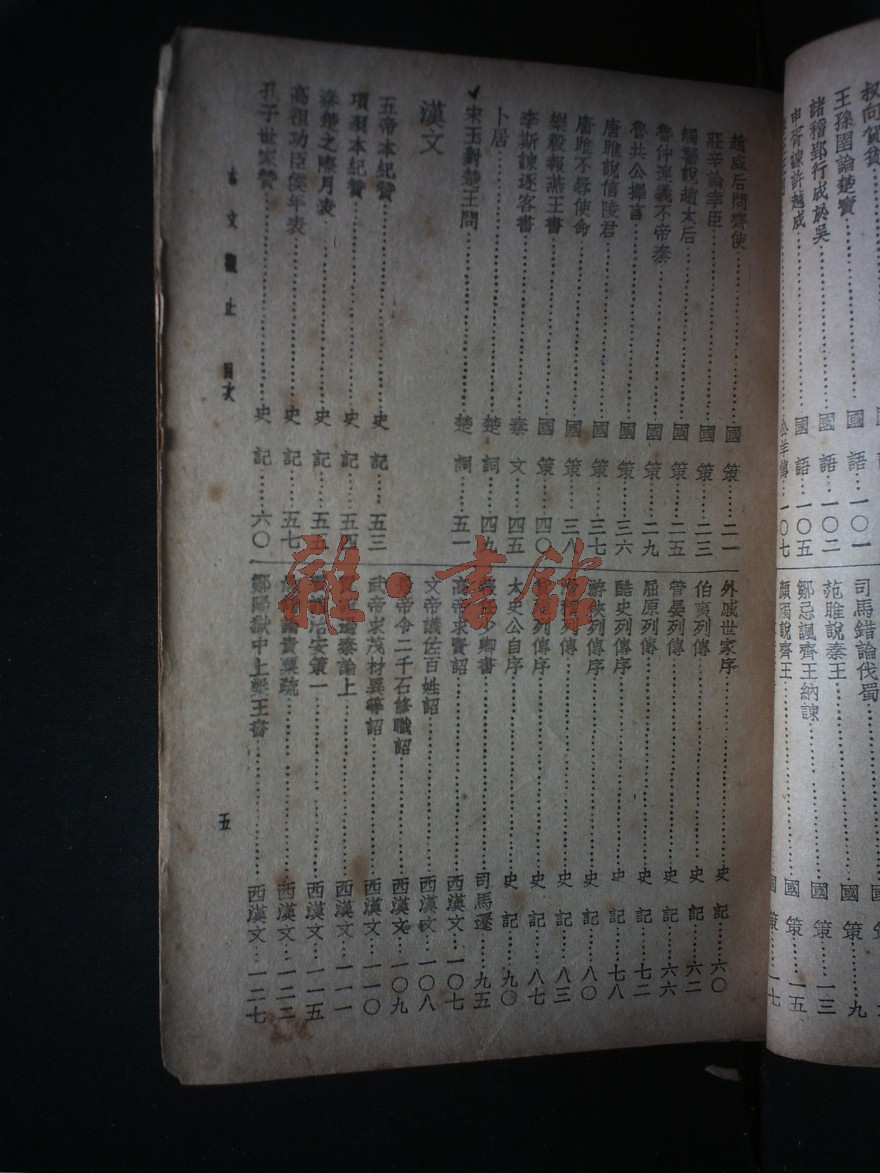 叔向賀貧
王孫圉論楚寶……國語…一〇一
諸稽郢行成於吳……國語…一〇二
申胥諫許越成……國語…一〇五
公羊傳…一〇七
司馬錯論伐蜀……國策…九
范雎說秦王……國策…一三
鄒忌諷齊王納諫……國策…一五
顏斶說齊王……國策…一七
趙威后問齊使……國策…二一
莊辛論幸臣……國策…二三
觸讋說趙太后……國策…二五
魯仲連義不帝秦……國策…二九
魯共公擇言……國策…三六
唐雎說信陵君……國策…三七
唐雎不辱使命……國策…三八
樂毅報燕王書……國策…四〇
李斯諫逐客書……秦文…四五
卜居……楚詞…四九
宋玉對楚王問……楚詞…五一
漢文
五帝本紀贊……史記…五三
項羽本紀贊……史記…五四
秦楚之際月表……史記…五五
高祖功臣侯年表……史記…五七
孔子世家贊……史記…六〇
外戚世家序……史記…六〇
伯夷列傳……史記…六二
管晏列傳……史記…六六
屈原列傳……史記…七二
酷吏列傳序……史記…七八
游俠列傳序……史記…八〇
滑稽列傳……史記…八三
列傳序……史記…八七
太史公自序……史記…九〇
少卿書……司馬遷…九五
高帝求賢詔……西漢文…一〇七
文帝議佐百姓詔……西漢文…一〇八
帝令二千石修職詔……西漢文…一〇九
武帝求茂材異等詔……西漢文…一一〇
過秦論上……西漢文…一一一
治安策一……西漢文…一一五
論貴粟疏……西漢文…一二二
鄒陽獄中上梁王書……西漢文…一二七
古文觀止 目次
五
雜·書館